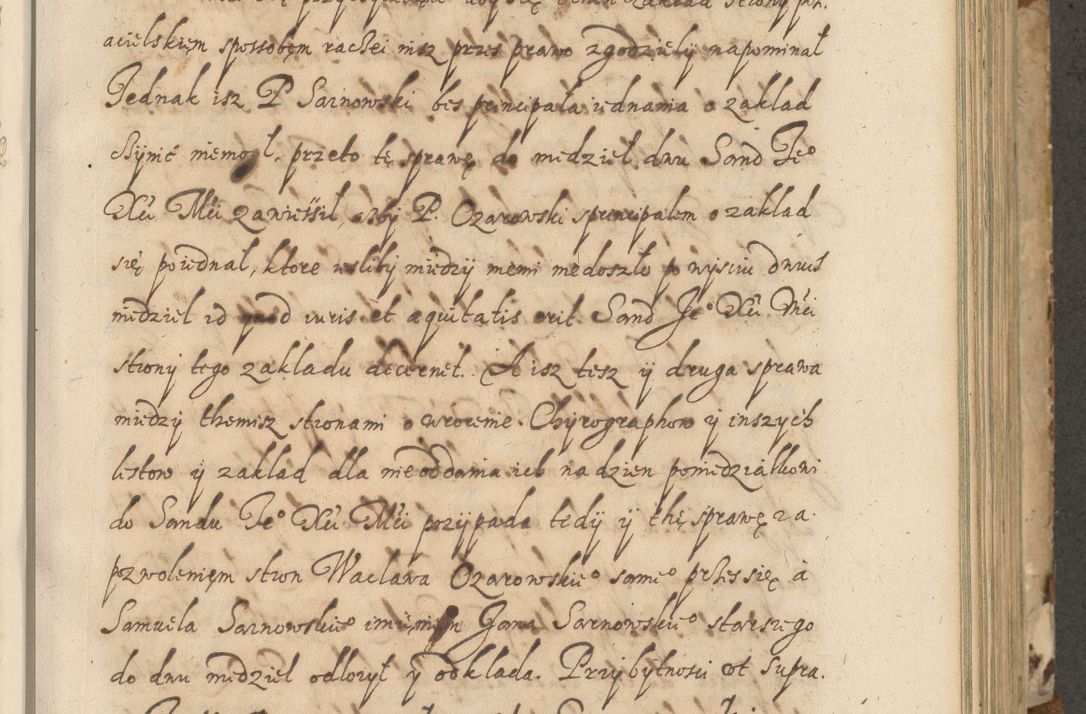 acielskięm sposobęm raczei nisz przes prawo zgodziely napominał
Jednak isz P Sarnowski bes principała iednania o zakład
czynić niemogł, przeto tę sprawę do niedziel dwu Sand Jeo
Xei Mei zawiesił, azby P. Ozarowski sprincipałem o zakład
się poiednał, ktore iesliby miedzy niemi niedoszło po wysciu dwuch
niedziel id quod iuris et æquitatis erit Sand Jeo Xei Mei
strony tego zakładu decernet. A isz tesz y druga sprawa
miedzy themisz stronami o wrocenie Chyrographow y inszych
listow y zakład dla nieoddania ich na dzien poniedziałkowi
do Sandu Jeo Xei Mei przypada tedy y thę sprawę za
pozwolenięm stron Wacława Ozarowskieo sameo przes się a
Samuela Sarnowskieo imieniem Jana Sarnowskieo starszego
do dwu niedziel odłozył y odkłada. Przy bytnosci ut supra.